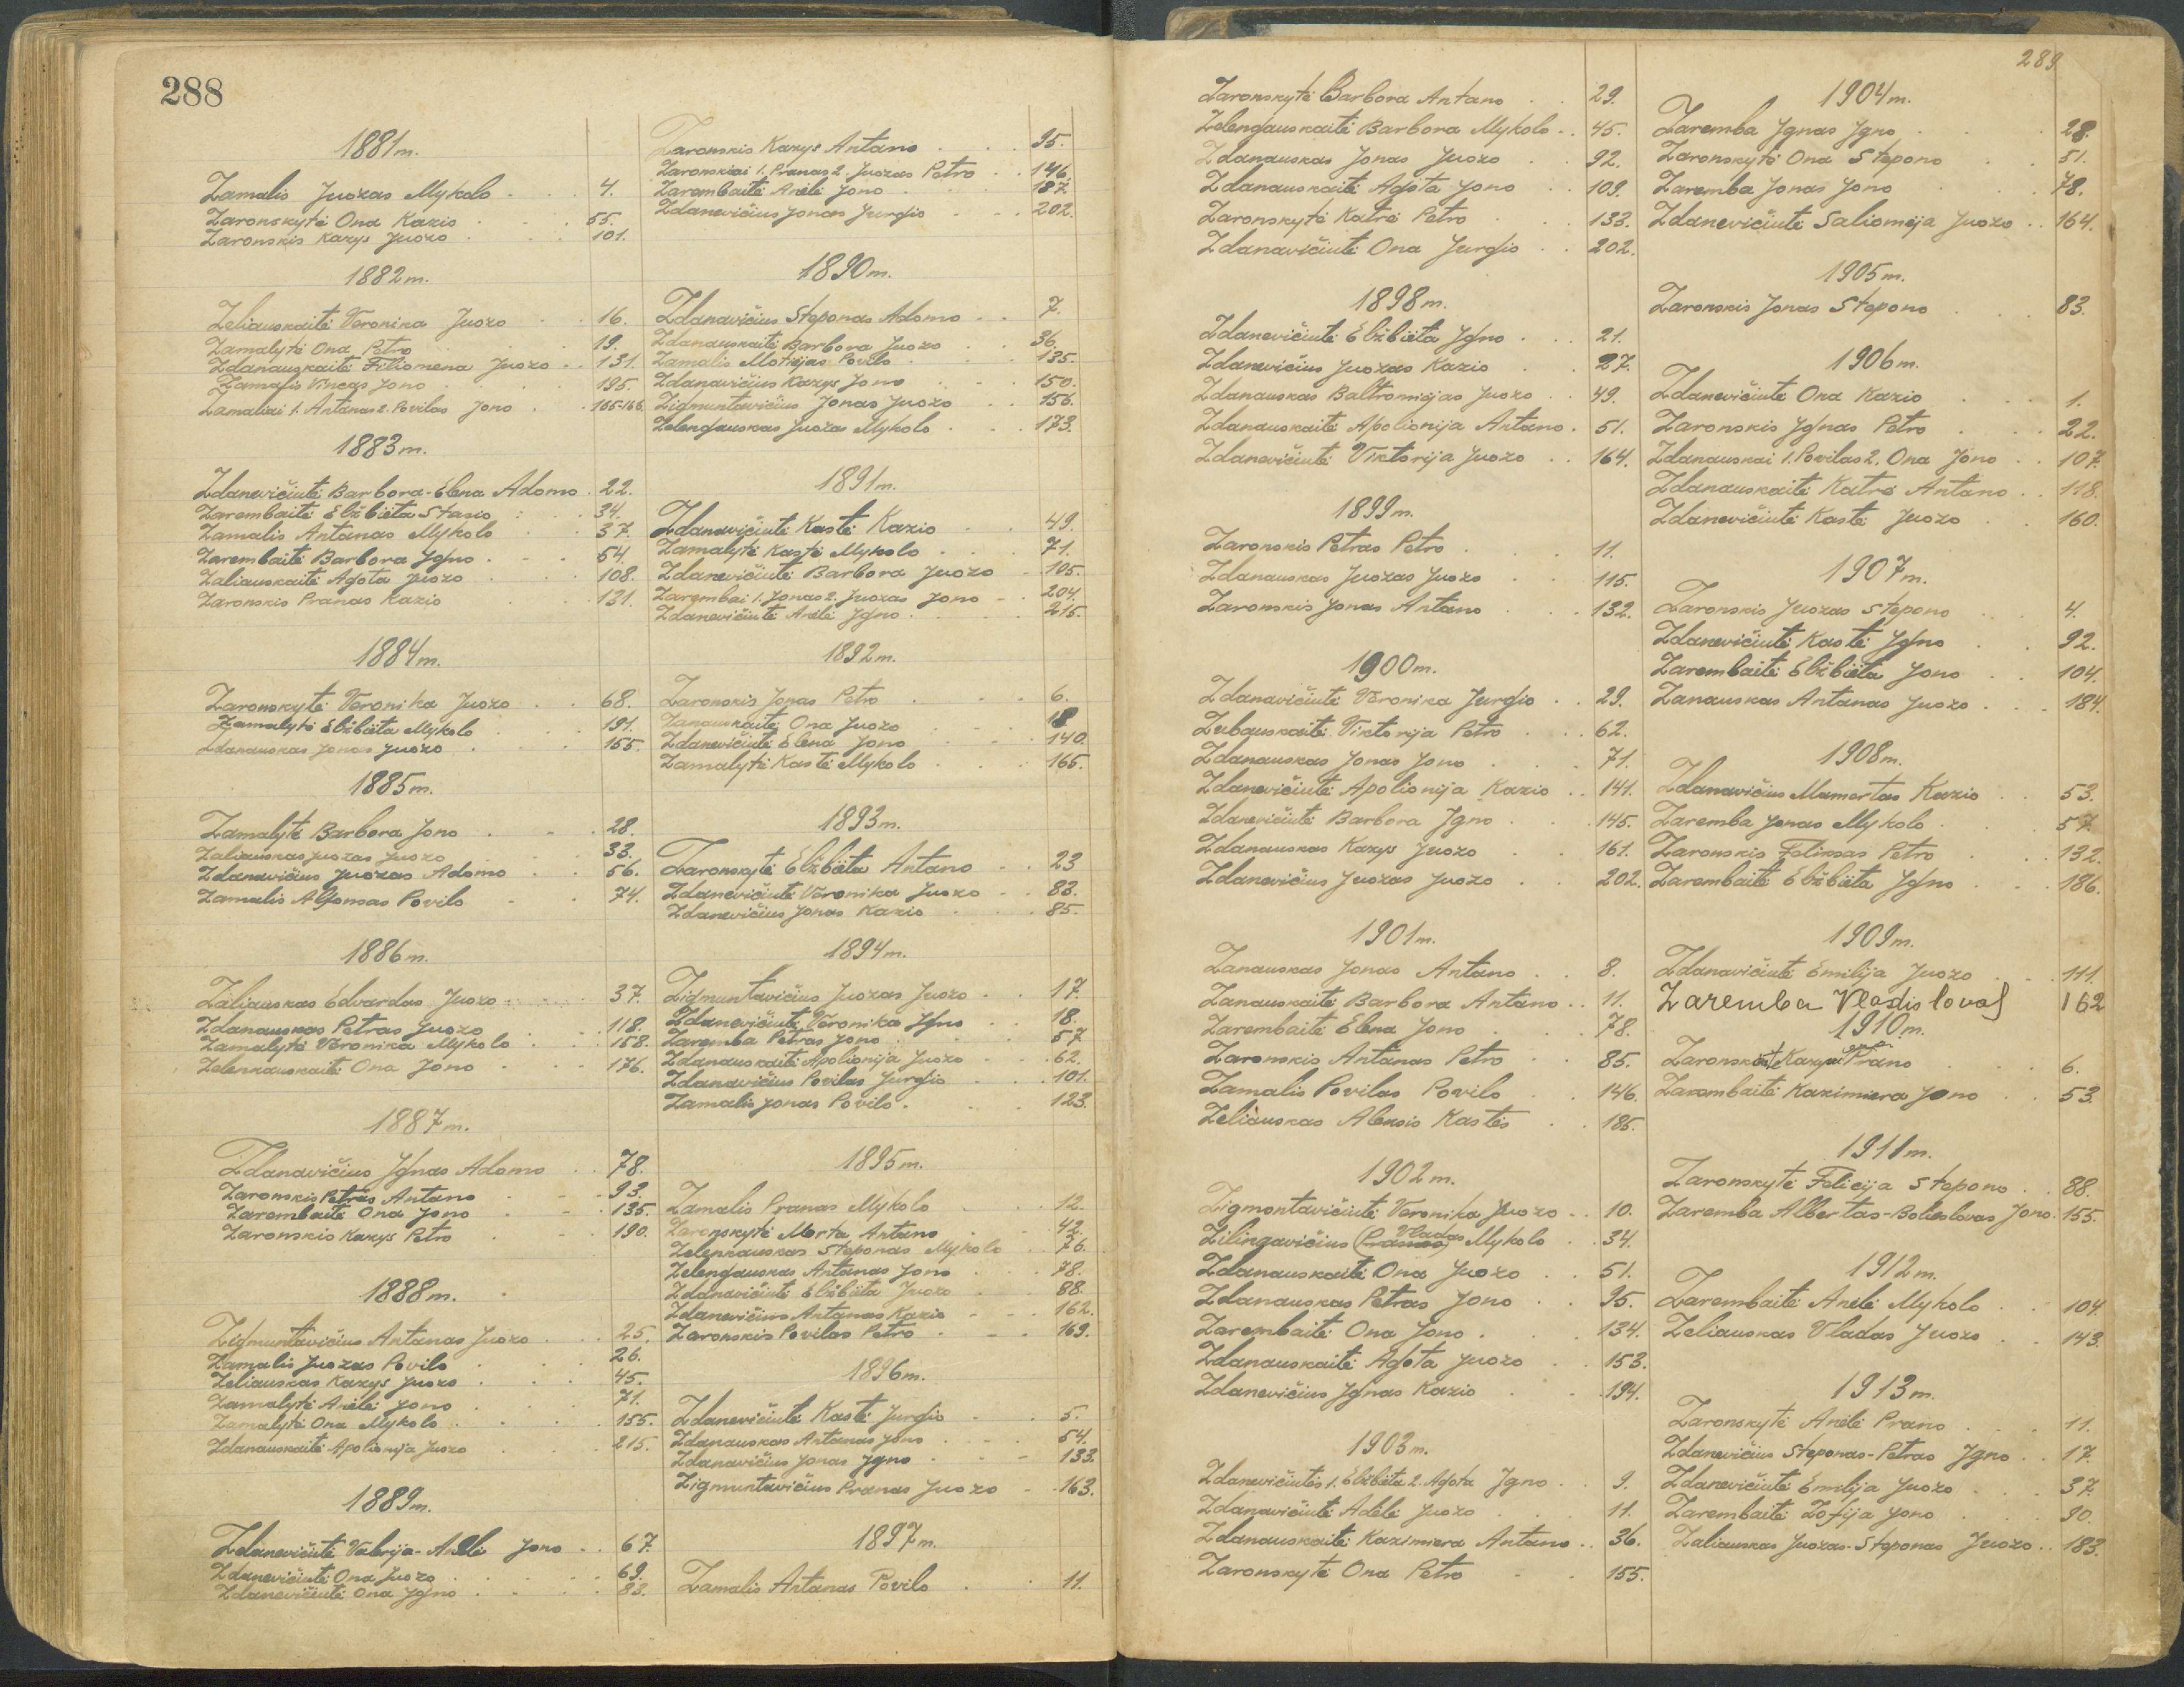 288
1881 m.
Zamalis Juozas Mykolo 4.
Zaronskytė Ona Kazio 55.
Zaronskis Kazys Juozo 101.
1882 m.
Zeliauskaitė Veronika Juozo 16.
Zamalytė Ona Petro 19.
Zdanauskaitė Filiomena Juozo 131.
Zamalis Vincas Jono 195.
Zamaliai 1. Antanas 2. Povilas Jono 165-166.
1883 m.
Zdanevičiutė Barbora-Elena Adomo 22.
Zarembaitė Elžbieta Stasio 34.
Zamalis Antanas Mykolo 37.
Zarembaitė Barbora Igno 54.
Zaliauskaitė Agota Juozo 108.
Zaronskis Pranas Kazio 131.
1884 m.
Zaronskytė Veronika Juozo 68.
Zamalytė Elžbieta Mykolo 191.
Zdanauskas Jonas Juozo 155.
1885 m.
Zamalytė Barbora Jono 28.
Zaliauskas Juozas Juozo 33.
Zdanavičius Juozas Adomo 56.
Zamalis Alfonsas Povilo 74.
1886 m.
Zaliauskas Edvardas Juozo 37.
Zdanauskas Petras Juozo 118.
Zamalytė Veronika Mykolo 158.
Zelenkauskaitė Ona Jono 176.
1887 m.
Zdanavičius Ignas Adomo 78.
Zaronskis Petras Antano 93.
Zarembaitė Ona Jono 135.
Zaronskis Kazys Petro 190.
1888 m.
Zigmuntavičius Antanas Juozo 25.
Zamalis Juozas Povilo 26.
Zeliauskas Kazys Juozo 45.
Zamalytė Anėlė Jono 71.
Zamalytė Ona Mykolo 155.
Zdanauskaitė Apolionija Juozo 215.
1889 m.
Zdanevičiutė Valerija-Anėlė Jono 67.
Zdanevičiutė Ona Juozo 69.
Zdanevičiutė Ona Igno 83.
Zaronskis Kazys Antano 95.
Zaronskiai 1. Pranas 2. Juozas Petro 146.
Zarembaitė Anėlė Jono 187.
Zdanevičius Jonas Jurgio 202.
1890 m.
Zdanavičius Steponas Adomo 7.
Zdanauskaitė Barbora Juozo 36.
Zamalis Motiejas Povilo 135.
Zdanavičius Kazys Jono 150.
Zigmuntavičius Jonas Juozo 156.
Zelengauskas Juozas Mykolo 173.
1891 m.
Zdanavičiutė Kastė Kazio 49.
Zamalytė Kastė Mykolo 71.
Zdanevičiutė Barbora Juozo 105.
Zarembai 1. Jonas 2. Juozas Jono 204.
Zdanevičiutė Anėlė Igno 215.
1892 m.
Zaronskis Jonas Petro 6.
Zanauskaitė Ona Juozo 18
Zdanevičiutė Elena Jono 140.
Zamalytė Kastė Mykolo 165.
1893 m.
Zaronskytė Elžbieta Antano 23
Zdanevičiutė Veronika Juozo 83.
Zdanevičius Jonas Kazio 85.
1894 m.
Zigmuntavičius Juozas Juozo 17.
Zdanevičiutė Veronika Igno 18.
Zaremba Petras Jono 57
Zdanauskaitė Apolionija Juozo 62.
Zdanavičius Povilas Jurgio 101.
Zamalis Jonas Povilo 123.
1895 m.
Zamalis Pranas Mykolo 12.
Zaronskytė Morta Antano 42.
Zelenkauskas Steponas Mykolo 76.
Zelengauskas Antanas Jono 78.
Zdanavičiutė Elžbieta Juozo 88.
Zdanevičius Antanas Kazio 162.
Zaronskis Povilas Petro 169.
1896 m.
Zdanevičiutė Kastė Jurgio 5.
Zdanauskas Antanas Jono 54.
Zdanavičius Jonas Igno 133.
Zigmuntavičius Pranas Juozo 163.
1897 m.
Zamalis Antanas Povilo 11.
289
Zaronskytė Barbora Antano 29.
Zelengauskaitė Barbora Mykolo 45.
Zdanauskas Jonas Juozo 92.
Zdanauskaitė Agota Jono 109.
Zaronskytė Katrė Petro 133.
Zdanavičiutė Ona Jurgio 202.
1898 m.
Zdanevičiutė Elžbieta Igno 21.
Zdanevičius Juozas Kazio 27.
Zdanauskas Baltromiejas Juozo 49.
Zdanauskaitė Apolionija Antano 51.
Zdanevičiutė Viktorija Juozo 164.
1899 m.
Zaronskis Petras Petro 11.
Zdanauskas Juozas Juozo 115.
Zaronskis Jonas Antano 132.
1900 m.
Zdanavičiutė Veronika Jurgio 29.
Zubauskaitė Viktorija Petro 62.
Zdanauskas Jonas Jono 71.
Zdanevičiutė Apolionija Kazio 141.
Zdanevičiutė Barbora Igno 145.
Zdanauskas Kazys Juozo 161.
Zdanevičius Juozas Juozo 202.
1901 m.
Zanauskas Jonas Antano 8.
Zanauskaitė Barbora Antano 11.
Zarembaitė Elena Jono 78.
Zaronskis Antanas Petro 85.
Zamalis Povilas Povilo 146.
Zeliauskas Aleksis Kastės 185.
1902 m.
Zigmontavičiutė Veronika Juozo 10.
Zilingavičius (Pranas) Vladas Mykolo 34.
Zdanauskaitė Ona Juozo 51.
Zdanauskas Petras Jono 95.
Zarembaitė Ona Jono 134.
Zdanauskaitė Agota Juozo 153.
Zdanevičius Ignas Kazio 194.
1903 m.
Zdanevičiutės 1. Elžbieta 2. Agota Igno 9.
Zdanavičiutė Adelė Juozo 11.
Zdanauskaitė Kazimiera Antano 36.
Zaronskytė Ona Petro 155.
1904 m.
Zaremba Ignas Igno 28.
Zaronskytė Ona Stepono 51.
Zaremba Jonas Jono 78.
Zdanevičiutė Saliomėja Juozo 164.
1905 m.
Zaronskis Jonas Stepono 83.
1906 m.
Zdanevičiutė Ona Kazio 1.
Zaronskis Ignas Petro 22.
Zdanauskai 1. Povilas 2. Ona Jono 107.
Zdanauskaitė Katrė Antano 118.
Zdanevičiutė Kastė Juozo 160.
1907 m.
Zaronskis Juozas Stepono 4.
Zdanevičiutė Kastė Igno 92.
Zarembaitė Elžbieta Jono 104.
Zanauskas Antanas Juozo 184.
1908 m.
Zdanavičius Mamertas Kazio 53.
Zaremba Jonas Mykolo 57
Zaronskis Feliksas Petro 132.
Zarembaitė Elžbieta Igno 186.
1909 m.
Zdanavičiutė Emilija Juozo 111.
Zaremba Vladislovas 162
1910 m.
Prano 6.
Zarembaitė Kazimiera Jono 53.
1911 m.
Zaronskytė Felicija Stepono 88.
Zaremba Albertas-Boleslovas Jono 155.
1912 m.
Zarembaitė Anėlė Mykolo 104.
Zeliauskas Vladas Juozo 143.
1913 m.
Zaronskytė Anėlė Prano 11.
Zdanevičius Steponas-Petras Igno 17.
Zdanevičiutė Emilija Juozo 37.
Zarembaitė Zofija Jono 90.
Zaliauskas Juozas-Steponas Juozo 183.